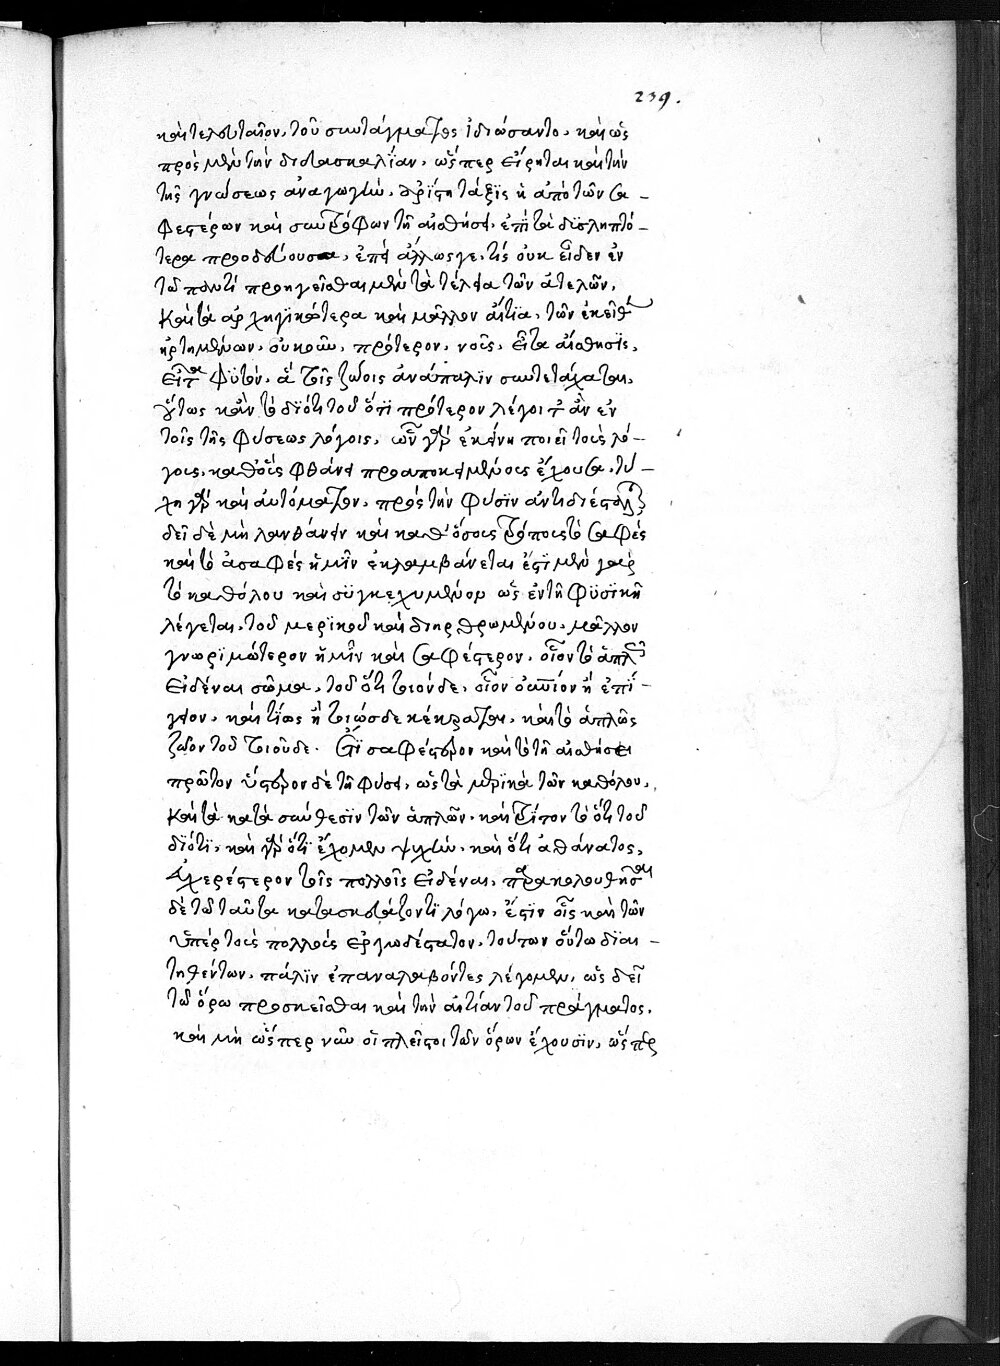 239.
καὶ τελευταῖον, τοῦ συντάγματος ἰδιώσαντο, καὶ ὡς
πρὸς μὲν τὴν διδασκαλίαν, ὥσπερ εἴρηται καὶ τὴν
τῆς γνώσεως ἀναγωγὴν, ἀρίστη τάξις ἡ ἀπὸ τῶν σα-
φεστέρων καὶ συντρόφων τῇ αἰσθήσει, ἐπὶ τὰ δυσληπτό-
τερα προοδεύουσα, ἐπεὶ ἄλλως γε, τίς οὐκ εἶδεν ἐν
τῷ παντὶ προηγεῖσθαι μὲν τὰ τέλεια τῶν ἀτελῶν,
καὶ τὰ ἀρχηγικώτερα καὶ μᾶλλον αἴτια, τῶν ἐκεῖθεν
ἠρτημένων, οὐκοῦν, πρότερον, νοῦς, εἶτα αἴσθησις,
εἶτα φυτόν, ἃ τοῖς ζώοις ἀνάπαλιν συντετάχαται,
οὕτως κἂν τὸ διότι τοῦ ὅτι πρότερον λέγοιτ ἂν ἐν
τοῖς τῆς φύσεως λόγοις, ὧν γὰρ ἐκείνη ποιεῖ τοὺς λό-
γους, καθ οὓς φθάνει προαποκειμένους ἔχουσα, τύ-
χη γὰρ καὶ αὐτόματον, πρὸς τὴν φύσιν ἀντιδιέσταλται
δεῖ δὲ μὴ λανθάνειν καὶ καθ' ὅσους τρόπους τὸ σαφές
καὶ τὸ ἀσαφές ἡμῖν ἐκλαμβάνεται ἔστι μὲν γὰρ
τὸ καθόλου καὶ συγκεχυμένον ὡς ἐν τῇ φυσικῇ
λέγεται, τοῦ μερικοῦ καὶ διηρθρωμένου, μᾶλλον
γνωριμώτερον ἡμῖν καὶ σαφέστερον, οἷον τὸ ἁπλῶς
εἰδέναι σῶμα, τοῦ ὅτι τοιόνδε, οἷον οὐράνιον ἢ ἐπί-
γειον, καὶ πῶς ἢ τοιῶσδε κέκραται, καὶ τὸ ἁπλῶς
ζῷον τοῦ τοιοῦδε. ἔτι σαφέστερον καὶ τὸ τῇ αἰσθήσει
πρῶτον ὕστερον δὲ τῇ φύσει, ὡς τὰ μερικὰ τῶν καθόλου,
καὶ τὰ κατὰ σύνθεσιν τῶν ἁπλῶν, καὶ τρίτον τὸ ὅτι τοῦ
διότι, καὶ γὰρ ὅτι ἔχομεν ψυχὴν, καὶ ὅτι ἀθάνατος,
εὐχερέστερον τοῖς πολλοῖς εἰδέναι, παρακολουθῆσαι
δὲ τῷ ταῦτα κατασκευάζοντι λόγῳ, ἔστιν οἷς καὶ τῶν
ὑπὲρ τοὺς πολλούς ἐργωδέστατον, τούτων οὕτω διαι-
τηθέντων, πάλιν ἐπαναλαβόντες λέγομεν, ὡς δεῖ
τῷ ὅρῳ προσκεῖσθαι καὶ τὴν αἰτίαν τοῦ πράγματος,
καὶ μὴ ὥσπερ νῦν οἱ πλεῖστοι τῶν ὅρων ἔχουσιν, ὥσπερ